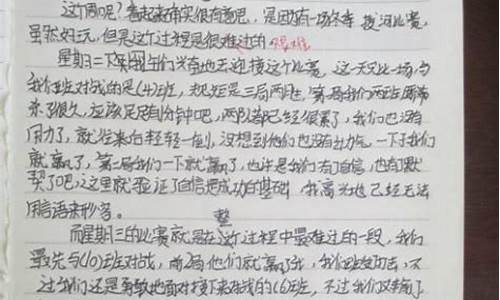 这个周呢?看起来确实很有意思,是因为有一场冬季拔河比赛,
虽然好玩,但是这个过程是很难过的 艰难
星期二下午同学们兴奋地去迎接这个比赛,这一天又一场与
我们班对战的是(4)班,规矩是三局两胜,第一局我们两班
来了很久,应该足足有分钟吧,两队都已经很累了,我们也没有
用力了,就往来自轻轻一侧,没想到他们也没有出力气,一下子我们
就赢了,第二局我们一下就赢了,也许是我们有了自信,也有了默
契了吧,这里就验证了自信是成功的基础,我高兴地已经无法
用言语来形容。
整
而星期三的比赛就是在这个过程中最难过的一段,我们
最先与(10)班对战,前2局他们就赢了我,我们班没力击,不
过我们还是勇敢地面对接下来对战的(6)班,不过我们又输了